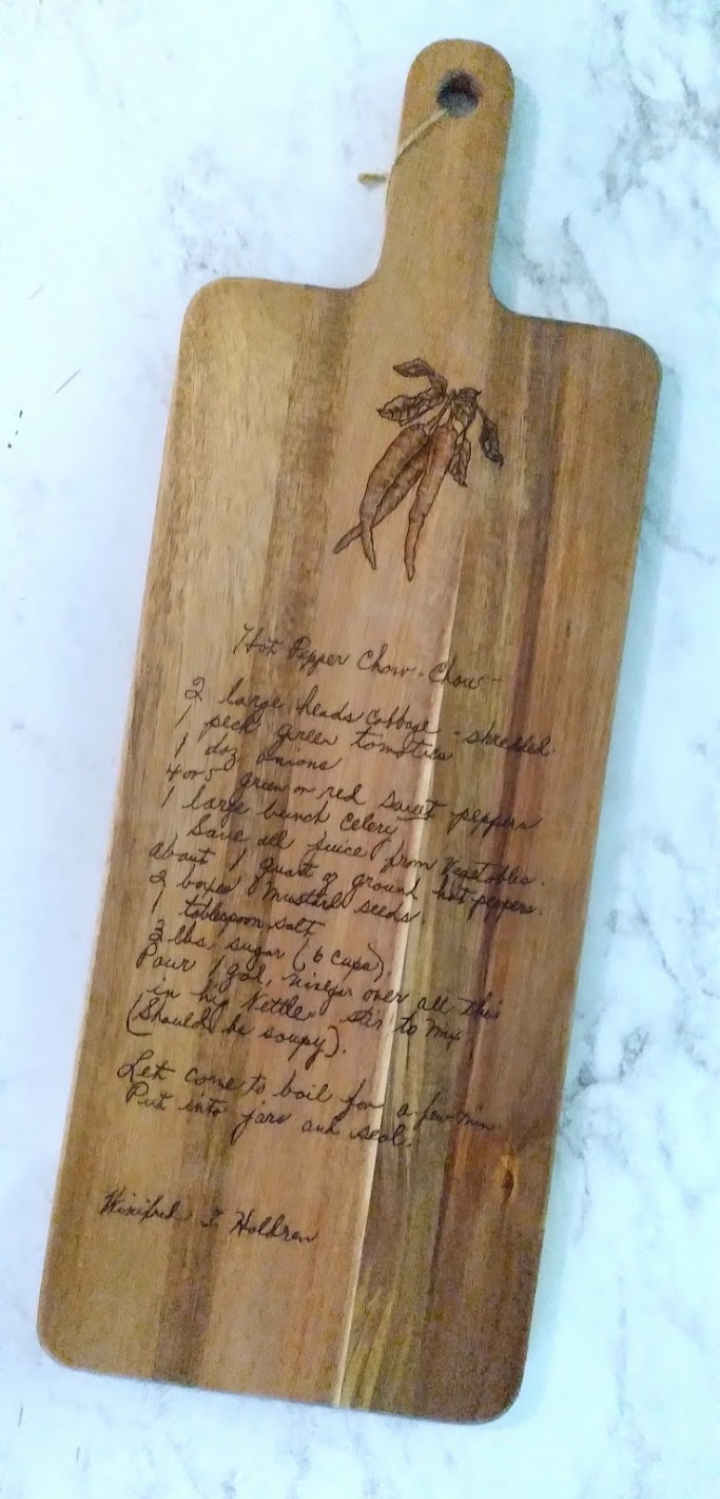 Hot Pepper Chow-Chow-
2 large heads cabbage - shredded.
1 peck green tomatoes
1 doz onions
4 or 5 green or red sweet peppers
1 large bunch celery
Save all juice from vegetables.
about 1 quart of ground hot peppers.
2 boxes mustard seeds.
1 tablespoon salt
3 lbs. sugar (6 cups).
Pour 1 gal. vinegar over all this
in big kettle, stir to mix
(Should be soupy).
Let come to boil for a few min.
Put into jars and seal.
Winifred Holdren